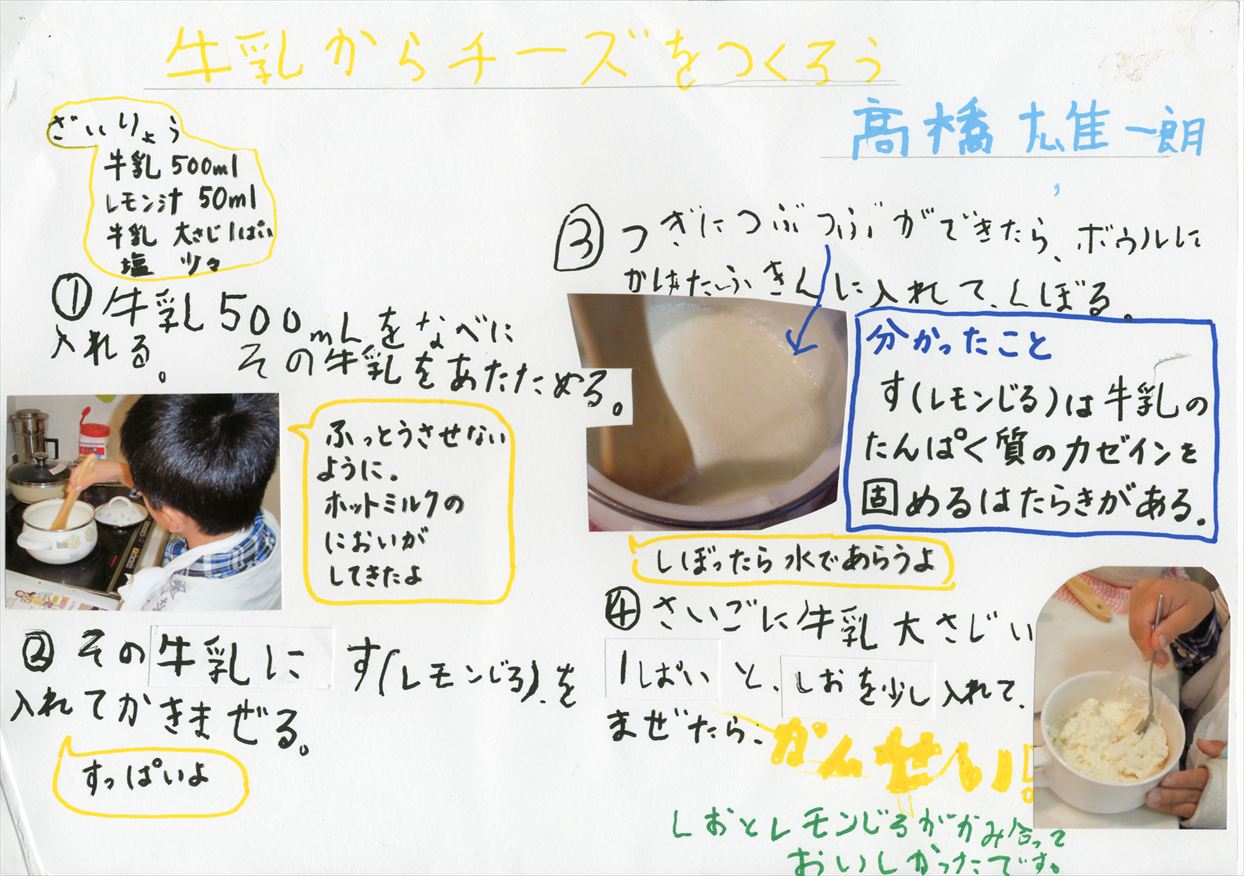 牛乳からチーズをつくろう
高橋 雄一朗
ざいりょう
牛乳 500ml
レモン汁 50ml
牛乳 大さじ1ぱい
塩 少々
① 牛乳500mLをなべに
入れる。 その牛乳をあたためる。
ふっとうさせない
ように。
ホットミルクの
においが
してきたよ
② その牛乳に す(レモンじる)、を
入れてかきまぜる。
すっぱいよ
③ つぎにつぶつぶができたら、ボウルに
かけたふきんに入れて、しぼる。
分かったこと
す(レモンじる)は牛乳の
たんぱく質のカゼインを
固めるはたらきがある。
しぼったら水であらうよ
④ さいごに牛乳大さじい
1ぱい と、しおを少し入れて、
まぜたら、かんせい!
しおとレモンじるががみ合って
おいしかったです。